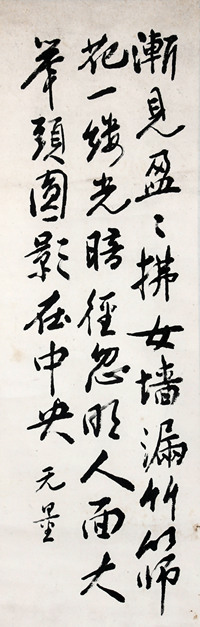 漸見盈〻拂女墻漏竹篩
花一縷光暗徑忽明人面大
舉頭圓影在中央
无量